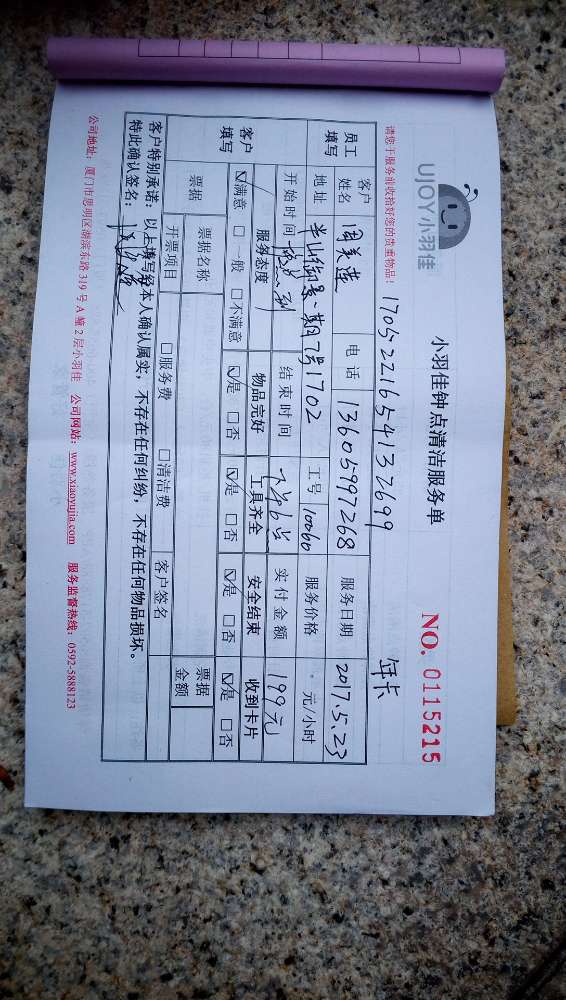 UJOY小羽佳
小羽佳钟点清洁服务单
NO. 0115215
请您于服务前收拾好您的贵重物品!
1705221654132699
年卡
员工填写
客户姓名
周美莲
电话
13605997268
服务日期
2017.5.23
地址
半山御景一期7号1702
工号
10060
服务价格
元/小时
开始时间
结束时间
下午6点
实付金额
199元
客户填写
服务态度
物品完好
工具齐全
安全结束
收到卡片
☑满意 □一般 □不满意
☑是 □否
☑是 □否
☑是 □否
☑是 □否
票据
票据名称
票据金额
开票项目
□服务费
□清洁费
客户签名
客户特别承诺:以上填写经本人确认属实,不存在任何纠纷,不存在任何物品损坏。
特此确认签名:
公司地址:厦门市思明区湖滨东路319号A幢2层小羽佳 公司网站:www.xiaoyujia.com 服务监督热线:0592-5888123